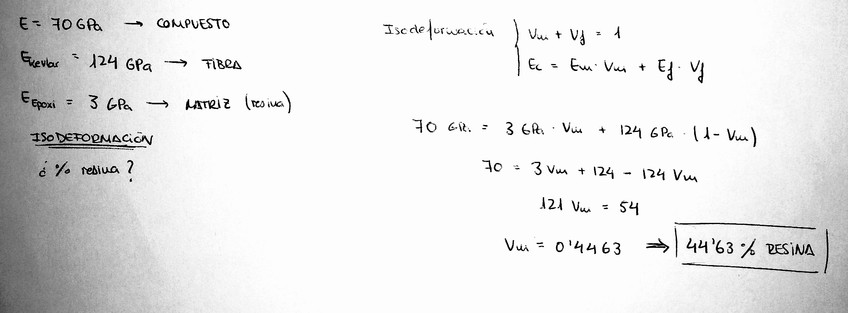 E = 70 GPa → COMPUESTO
E_Kevlar = 124 GPa → FIBRA
E_Epoxi = 3 GPa → MATRIZ (resina)
ISODEFORMACIÓN
¿ % resina ?
Isodeformación { Vm + Vf = 1
Ec = Em · Vm + Ef · Vf
70 GPa = 3 GPa · Vm + 124 GPa · (1 - Vm)
70 = 3 Vm + 124 - 124 Vm
121 Vm = 54
Vm = 0'4463 ⇒ 44'63 % RESINA